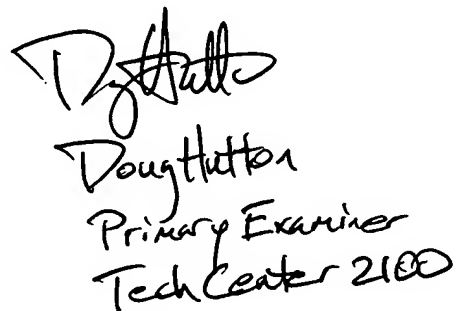 Doug Hutton
Doug Hutton
Primary Examiner
Tech Center 2100